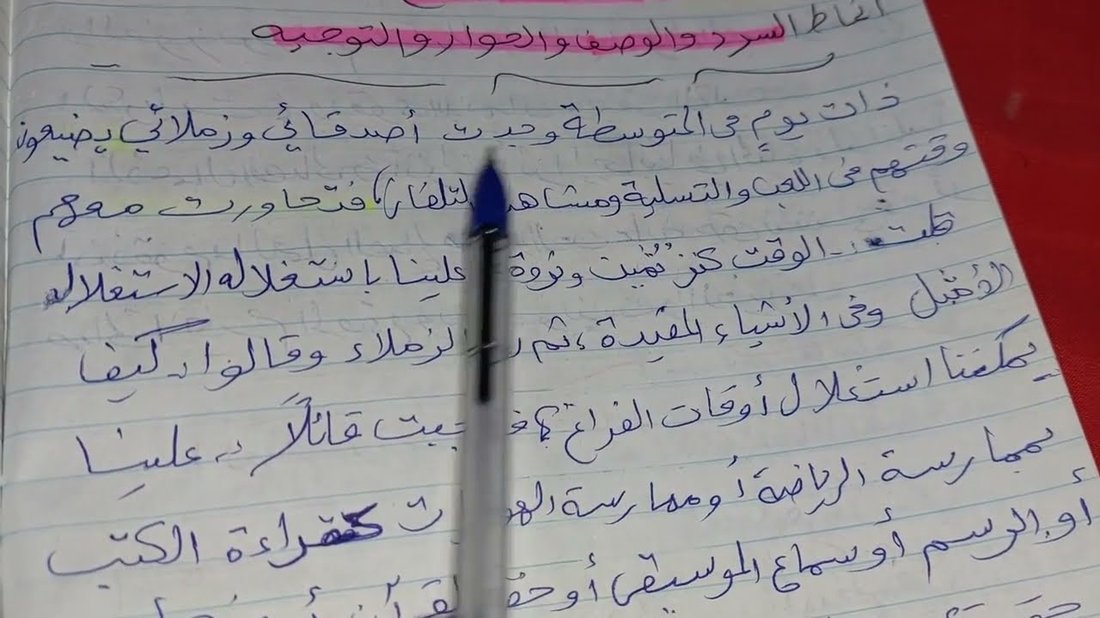 أنماط السرد والوصف والحوار والتوجيه
ذات يوم في المتوسطة وجدت أصدقائي وزملائي يضيعون
وقتهم في اللعب والتسلية ومشاهدة التلفاز) فتحاورت معهم
قلت:- الوقت كنز ثمين وثروة علينا باستغلاله الاستغلاله
الأمثل وفي الأشياء المفيدة، ثم رد الزملاء وقالوا: كيف
يمكننا استغلال أوقات الفراغ؟ فأجبت قائلاً: علينا
بممارسة الرياضة أو ممارسة الهوايات كقراءة الكتب
أو الرسم أو سماع الموسيقى أو حفظ القرآن